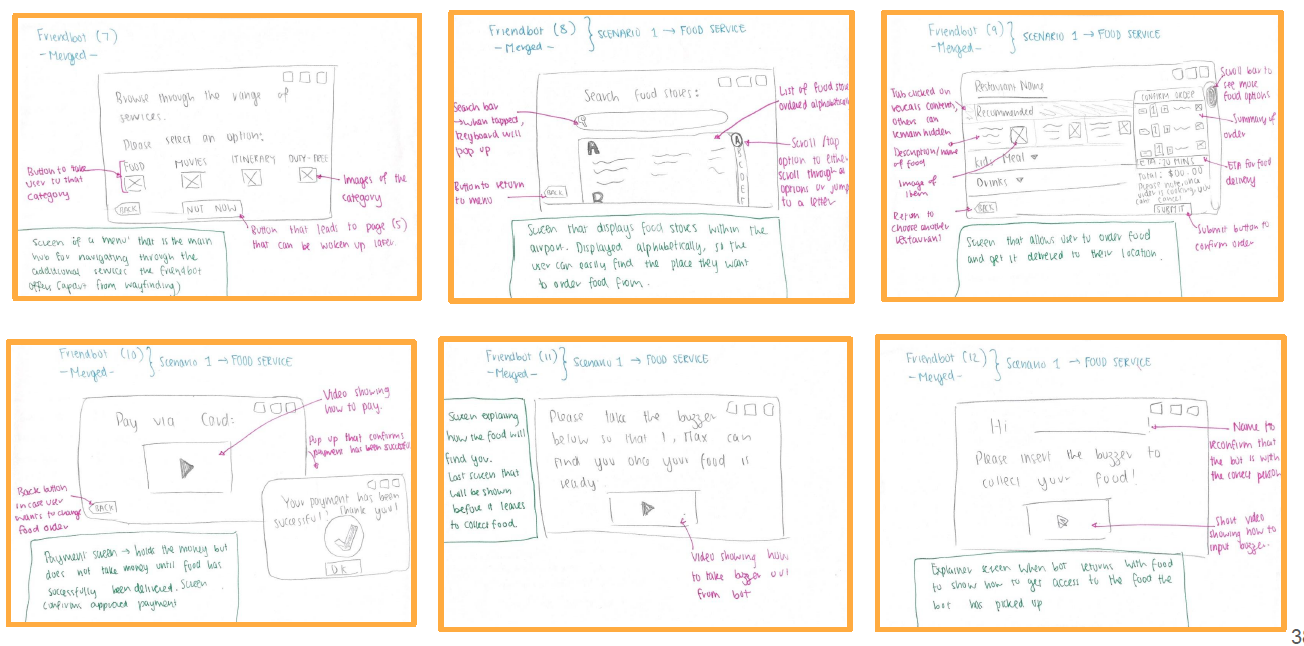 Friendbot (7)
- Merged -
Browse through the range of
services.
Please select an option:
FOOD MOVIES ITINERARY DUTY-FREE
BACK
NOT NOW
Button to take
user to that
category
Images of the
category
Button that leads to page (5)
that can be woken up later.
Screen of a 'menu' that is the main
hub for navigating through the
additional services the friendbot
offers (apart from wayfinding)
Friendbot (8) } SCENARIO 1 → FOOD SERVICE
- Merged -
Search food stores:
A
B
A
BACK
Search bar
→ when tapped,
keyboard will
pop up
Button to return
to menu
List of food stores
ordered alphabetically
Scroll /tap
option to either
scroll through
options or jump
to a letter
Screen that displays food stores within the
airport. Displayed alphabetically, so the
user can easily find the place they want
to order food from.
Friendbot (9) } SCENARIO 1 → FOOD SERVICE
- Merged -
Restaurant Name
Recommended
Kids Meal
Drinks
BACK
CONFIRM ORDER
1
1
1
ETA: 20 MINS
Total: $00.00
Please note, once
order is cooking, you
cant cancel
SUBMIT
Tab clicked on
reveals contents,
others can
remain hidden
Description/name
of food
Image of
item
Return to
choose another
restaurant
Scroll bar to
see more
food options
Summary of
order
ETA for food
delivery
Submit button to
confirm order
Screen that allows user to order food
and get it delivered to their location.
Friendbot (10) } Scenario 1 → FOOD SERVICE
- Merged -
Pay via Card:
BACK
Video showing
how to pay.
Pop up that confirms
payment has been successful
Your payment has been
successful! Thank you!
OK
Back button
in case user
wants to change
food order
Payment screen → holds the money but
does not take money until food has
successfully been delivered. Screen
confirms approved payment
Friendbot (11) } Scenario 1 → FOOD SERVICE
- Merged -
Screen explaining
how the food will
find you.
Last screen that
will be shown
before it leaves
to collect food.
Please take the buzzer
below so that I, Max can
find you once your food is
ready.
Video showing how
to take buzzer out
from bot
Friendbot (12) } Scenario 1 → FOOD SERVICE
- Merged -
Hi
Please insert the buzzer to
collect your food!
Name to
reconfirm that
the bot is with
the correct person
Short video
showing how to
input buzzer.
Explainer screen when bot returns with food
to show how to get access to the food the
bot has picked up
38